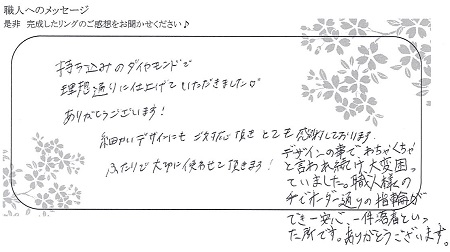 職人へのメッセージ
是非 完成したリングのご感想をお聞かせください♪
持ち込みのダイヤモンドで
理想通りに仕上げていただきました。
ありがとうございます!
細かいデザインにもご対応頂きとても感謝しております。
ふたりで大切に使わせて頂きます!
デザインの事で、わちゃくちゃ
と言われ続け、大変困っ
ていました。職人様の
手でオーダー通りの指輪が
でき一安心、一件落着といっ
た所です。ありがとうございます。